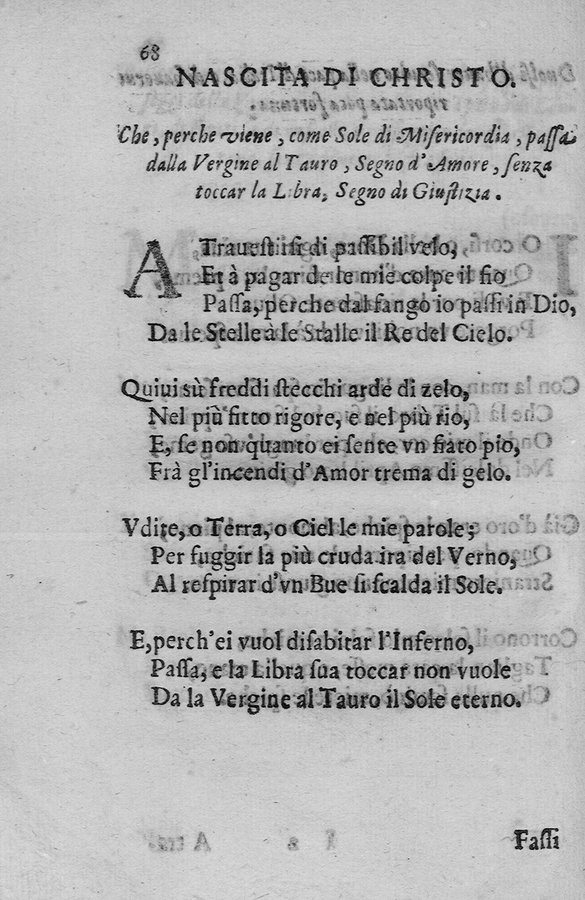 68
NASCITA DI CHRISTO.
Che, perche viene, come Sole di Misericordia, passa
dalla Vergine al Tauro, Segno d'Amore, senza
toccar la Libra, Segno di Giustizia.
A Trauestirsi di passibil velo,
Et à pagar de le mie colpe il fio
Passa, perche dal fango io passi in Dio,
Da le Stelle à le Stalle il Re del Cielo.
Quiui sù freddi stecchi arde di zelo,
Nel più fitto rigore, e nel più rio,
E, se non quanto ei sente vn fiato pio,
Frà gl'incendi d'Amor trema di gelo.
Vdite, o Terra, o Ciel le mie parole;
Per fuggir la più cruda ira del Verno,
Al respirar d'vn Bue si scalda il Sole.
E, perch'ei vuol disabitar l'Inferno,
Passa, e la Libra sua toccar non vuole
Da la Vergine al Tauro il Sole eterno.
Fassi